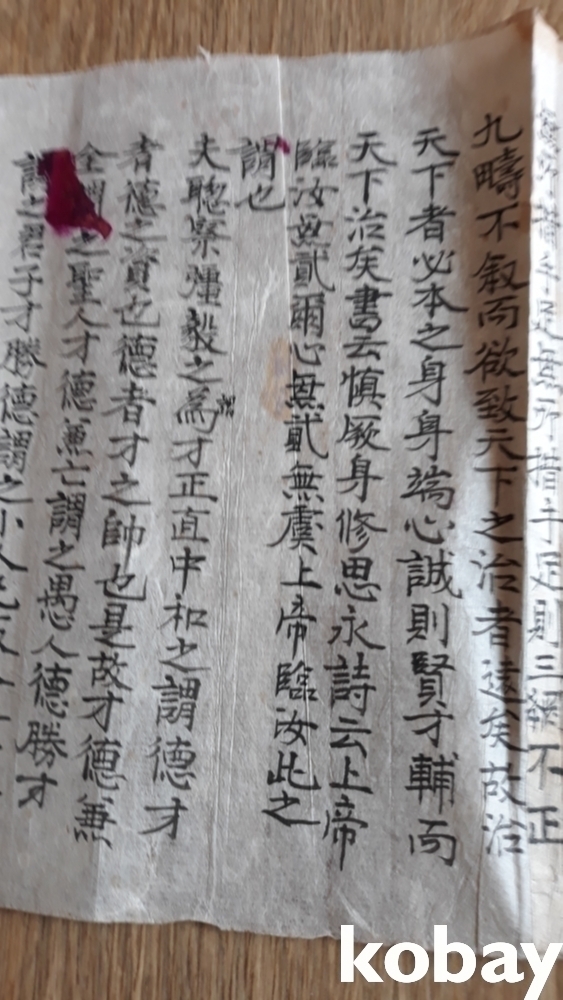 措手足無所措手足則三綱不正
九疇不叙而欲致天下之治者遠矣故治
天下者必本之身身端心誠則賢才輔而
天下治矣書云慎厥身修思永詩云上帝
臨汝無貳爾心無貳無虞上帝臨汝此之
謂也
夫聡察彊毅之為謂才正直中和之謂德才
者德之資也德者才之帥也是故才德兼
全謂之聖人才德兼亡謂之愚人德勝才
謂之君子才勝德謂之小人
kobay